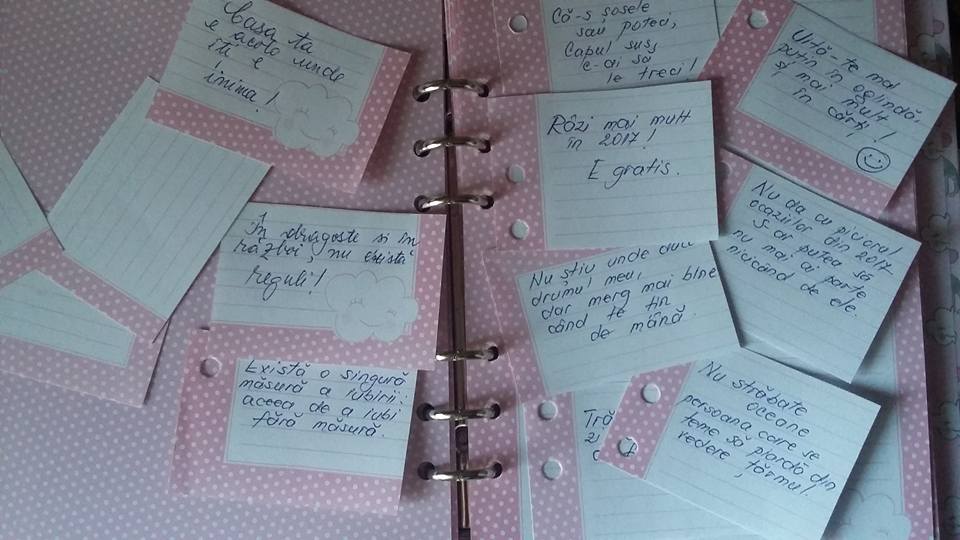 Casa ta
e acolo unde
îți e
inima!
În dragoste si în
război nu există
reguli!
Există o singură
măsură a iubirii:
aceea de a iubi
fără măsură.
Că-s șosele
sau poteci,
Capul sus,
c-ai să
le treci!
Râzi mai mult
în 2017!
E gratis.
Nu știu unde duce
drumul meu,
dar merg mai bine
când te țin
de mână.
Uită-te mai
puțin în oglindă,
și mai mult
în cărți!
Nu da cu piciorul
ocaziilor din 2017
S-ar putea să
nu mai ai parte
nicicând de ele.
Nu străbate
oceane
persoana care se
teme să piardă din
vedere țărmul.